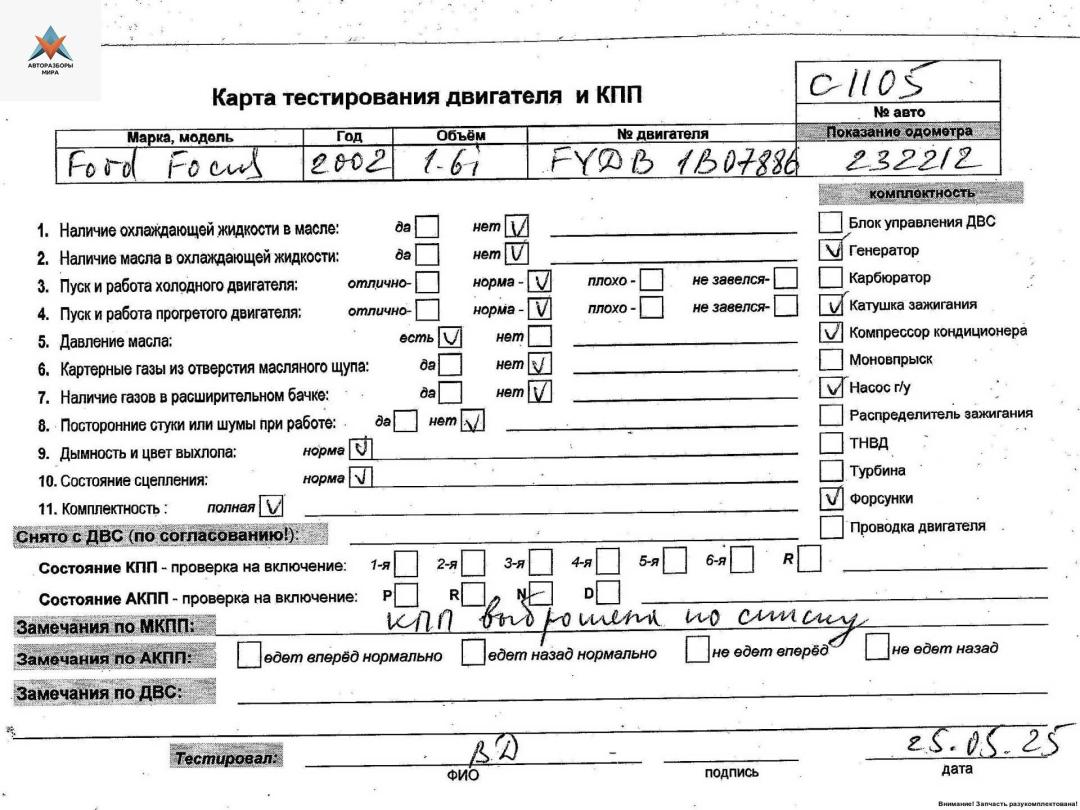 АВТОРАЗБОРЫ
МИРА
Карта тестирования двигателя и КПП
C-1105
№ авто
Марка, модель Год Объём № двигателя Показание одометра
Ford Focus 2002 1.6i FYDB 1B07886 232212
комплектность
1. Наличие охлаждающей жидкости в масле: да нет V
2. Наличие масла в охлаждающей жидкости: да нет V
3. Пуск и работа холодного двигателя: отлично- норма - V плохо - не завелся-
4. Пуск и работа прогретого двигателя: отлично- норма - V плохо - не завелся-
5. Давление масла: есть V нет
6. Картерные газы из отверстия масляного щупа: да нет V
7. Наличие газов в расширительном бачке: да нет V
8. Посторонние стуки или шумы при работе: да нет V
9. Дымность и цвет выхлопа: норма V
10. Состояние сцепления: норма V
11. Комплектность : полная V
Блок управления ДВС
V Генератор
Карбюратор
V Катушка зажигания
V Компрессор кондиционера
Моновпрыск
V Насос г/у
Распределитель зажигания
ТНВД
Турбина
V Форсунки
Проводка двигателя
Снято с ДВС (по согласованию!):
Состояние КПП - проверка на включение: 1-я 2-я 3-я 4-я 5-я 6-я R
Состояние АКПП - проверка на включение: P R N D
Замечания по МКПП: КПП выброшена по списку
Замечания по АКПП: едет вперёд нормально едет назад нормально не едет вперёд не едет назад
Замечания по ДВС:
Тестировал: ВД 25.05.25
ФИО подпись дата
Внимание! Запчасть разукомплектована!